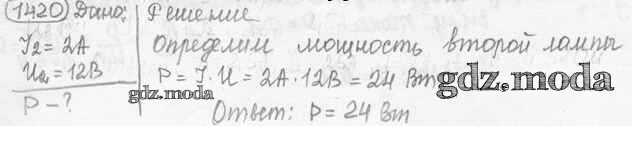 1420 Дано: Решение
I₂ = 2А Определим мощность второй лампы
U₂ = 12В P = I · U = 2А · 12В = 24 Вт gdz.moda
P - ? gdz.moda
Ответ: P = 24 Вт